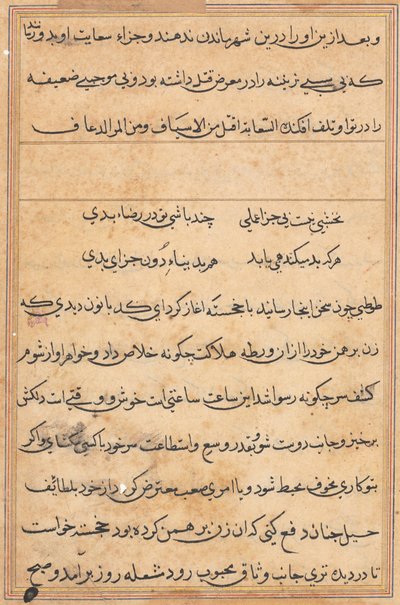 و بعد ازین او را درین شهر ماندن ندهند و جزاء سعایت او بدو رسانند
که بی سببے زنے را در معرض قتل داشته بود و بی موجبے ضعیفه
را در توا و تلف افکنده السعایة اقتل من الاسیاف و من
نخشبی نیست بی جزا عملی چند باشی تو در رضاء بدی
هر که بد میکند همی یابد هم بدنیاء دون جزای بدی
طوطی چون سخن اینجا رسانید با خجسته اغاز کرد ای کدبانو ندیدی که
زن برهمن خود را ازان ورطه هلاکت چگونه خلاص داد و خواهر او از شوم
کشف سر چگونه رسوا شد این ساعت ساعتی است خوش و وقتی است دلکش
برخیز و جانب دوست شو و بقدر وسع و استطاعت سر خود با کسی نکشای و اکر
بتو کاری مخوف محیط شود و یا امری صعب معترض کردد از خود بلطائف
حیل چنان دفع کنی که ان زن برهمن کرده بود خجسته خواست
تا در دیدن تری جانب وثاق محبوب رود شعله روز بر آمد و صبح